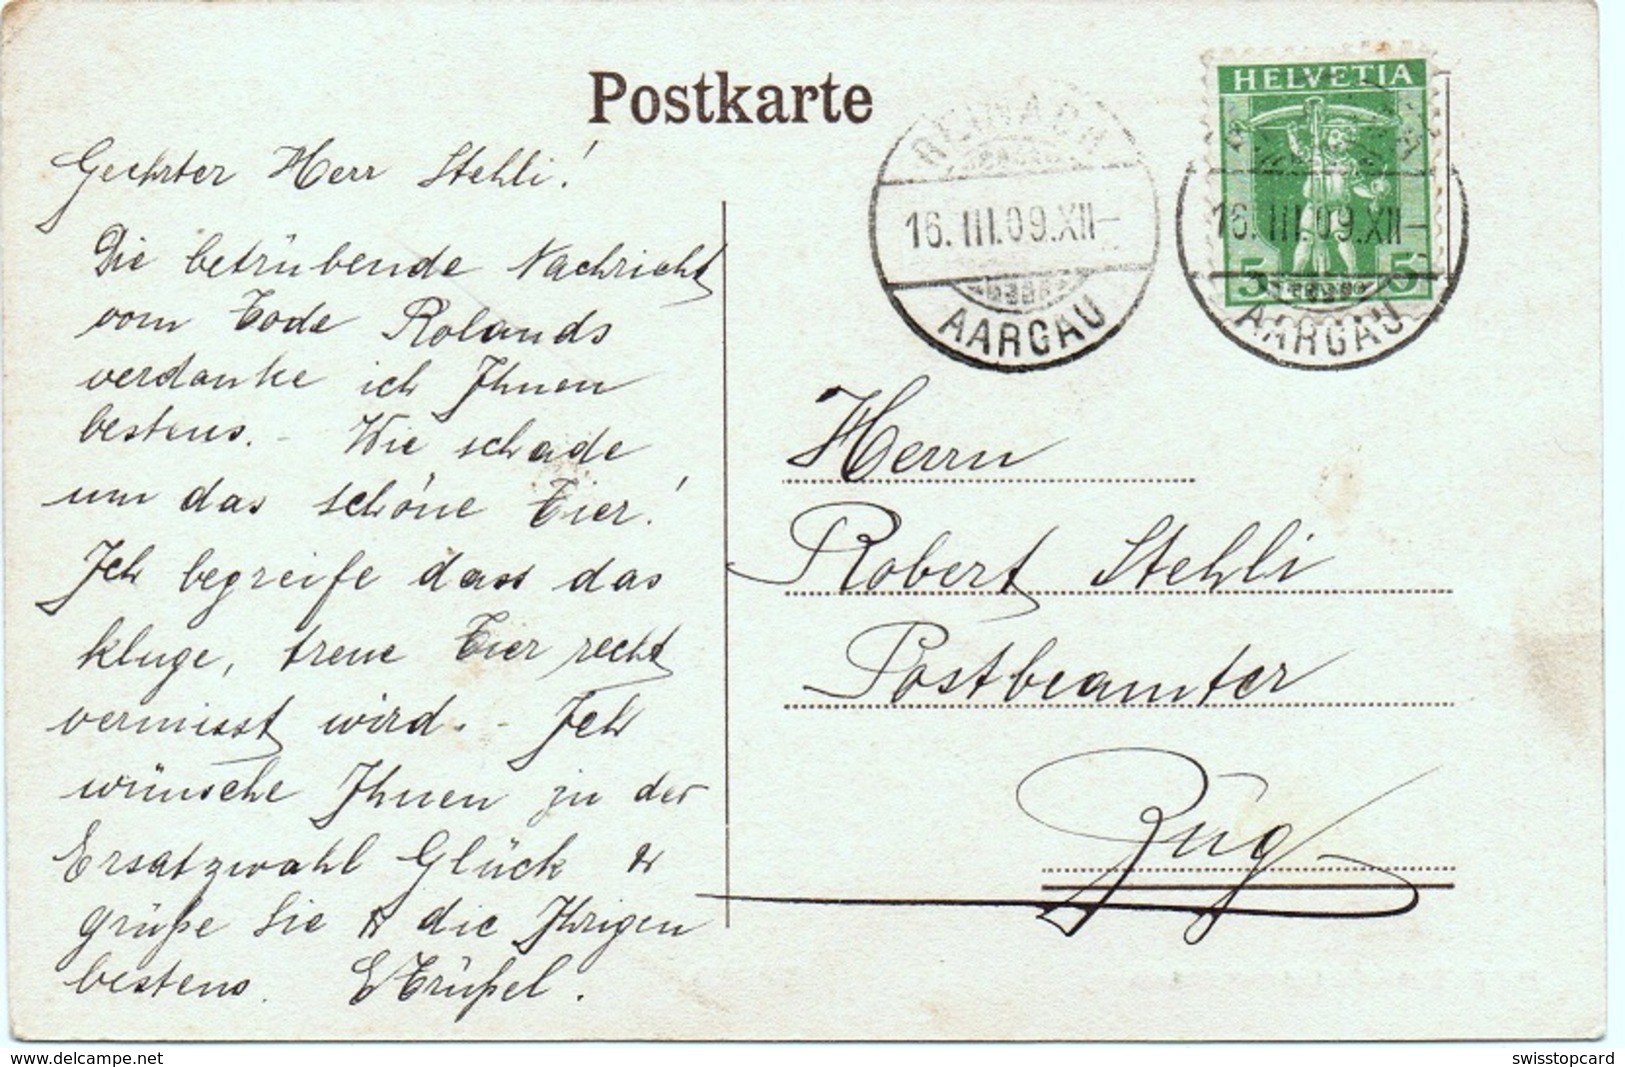 Postkarte
Geehrter Herr Stehli!
Die betrübende Nachricht
vom Tode Rolands
verdanke ich Ihnen
bestens. - Wie schade
um das schöne Tier!
Ich begreife dass das
kluge, treue Tier recht
vermisst wird. - Ich
wünsche Ihnen zu der
Ersatzwahl Glück &
grüße Sie & die Ihrigen
bestens.
HELVETIA
5 5
REINACH
16.III.09.XII-
AARGAU
16.III.09.XII-
AARGAU
Herrn
Robert Stehli
Postbeamter
Zug
delcampe.net
swisstopcard